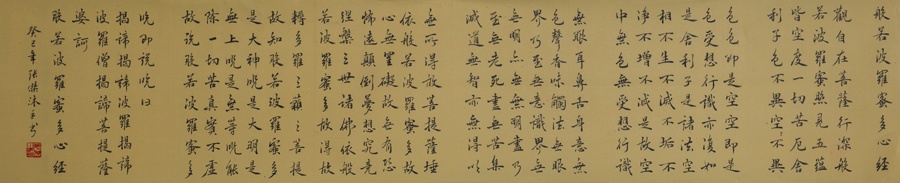 般若波羅蜜多心經
觀自在菩薩行深般
若波羅蜜照見五蘊
皆空度一切苦厄舍
利子色不異空空不異
色色即是空空即是
色受想行識亦復如
是舍利子是諸法空
相不生不滅不垢不
淨不增不減是故空
中無色無受想行識
無眼耳鼻舌身意無
色聲香味觸法無眼
界乃至無意識界無
無明亦無無明盡乃
至無老死盡無苦集
滅道無智亦無得以
無所得故菩提薩埵
依般若波羅蜜多故
心無罣礙故無有恐
怖遠顛倒夢想究竟
涅槃三世諸佛依般
若波羅蜜多故得
耨多羅三藐三菩提
故知般若波羅蜜多
是大神咒是大明是
無上咒是無等咒能
除一切苦真實不虛
故說般若波羅蜜多
咒即說咒曰
揭諦揭諦波羅揭諦
波羅僧揭諦菩提薩
婆訶
般若波羅蜜多心經
癸巳年張傑沐手書